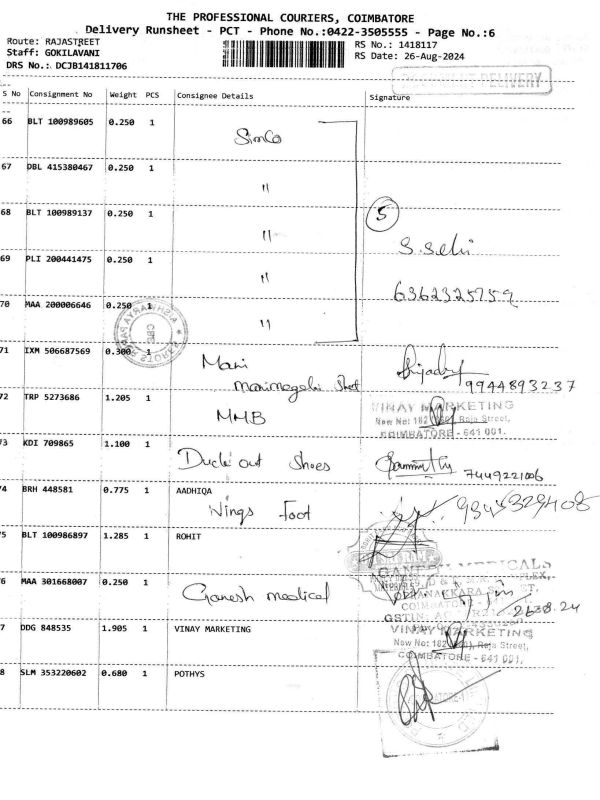 THE PROFESSIONAL COURIERS, COIMBATORE
Delivery Runsheet - PCT - Phone No.:0422-3505555 - Page No.:6
Route: RAJASTREET
Staff: GOKILAVANI
DRS No.: DCJB141811706
RS No.: 1418117
RS Date: 26-Aug-2024
DELIVERY
S No Consignment No Weight PCS Consignee Details Signature
66 BLT 100989605 0.250 1 Simco
67 DBL 415380467 0.250 1 "
68 BLT 100989137 0.250 1 " 5
69 PLI 200441475 0.250 1 "
6362325759
70 MAA 200006646 0.250 1 "
71 IXM 506687569 0.300 1 Mani
9944893237
72 TRP 5273686 1.205 1 MMB
VINAY MARKETING
New No: 182 Raja Street,
COIMBATORE - 641 001.
73 KDI 709865 1.100 1 Duck out Shoes
7449221006
74 BRH 448581 0.775 1 AADHIQA
Wings Foot
75 BLT 100986897 1.285 1 ROHIT
76 MAA 301668007 0.250 1 Ganesh medical
GANESH MEDICALS
77 DDG 848535 1.905 1 VINAY MARKETING
VINAY MARKETING
New No: 182 Raja Street,
COIMBATORE - 641 001.
78 SLM 353220602 0.680 1 POTHYS